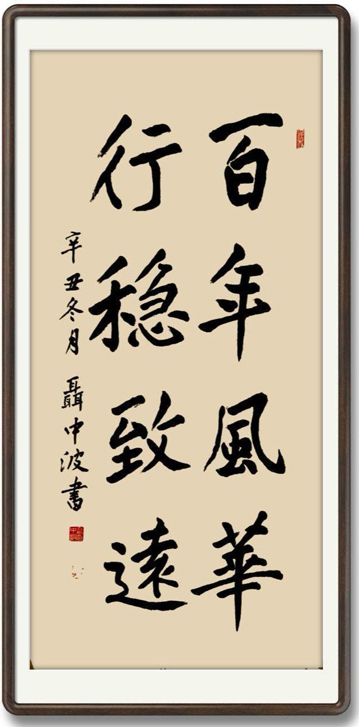 百年風華
行稳致遠
辛丑冬月 聶中波書